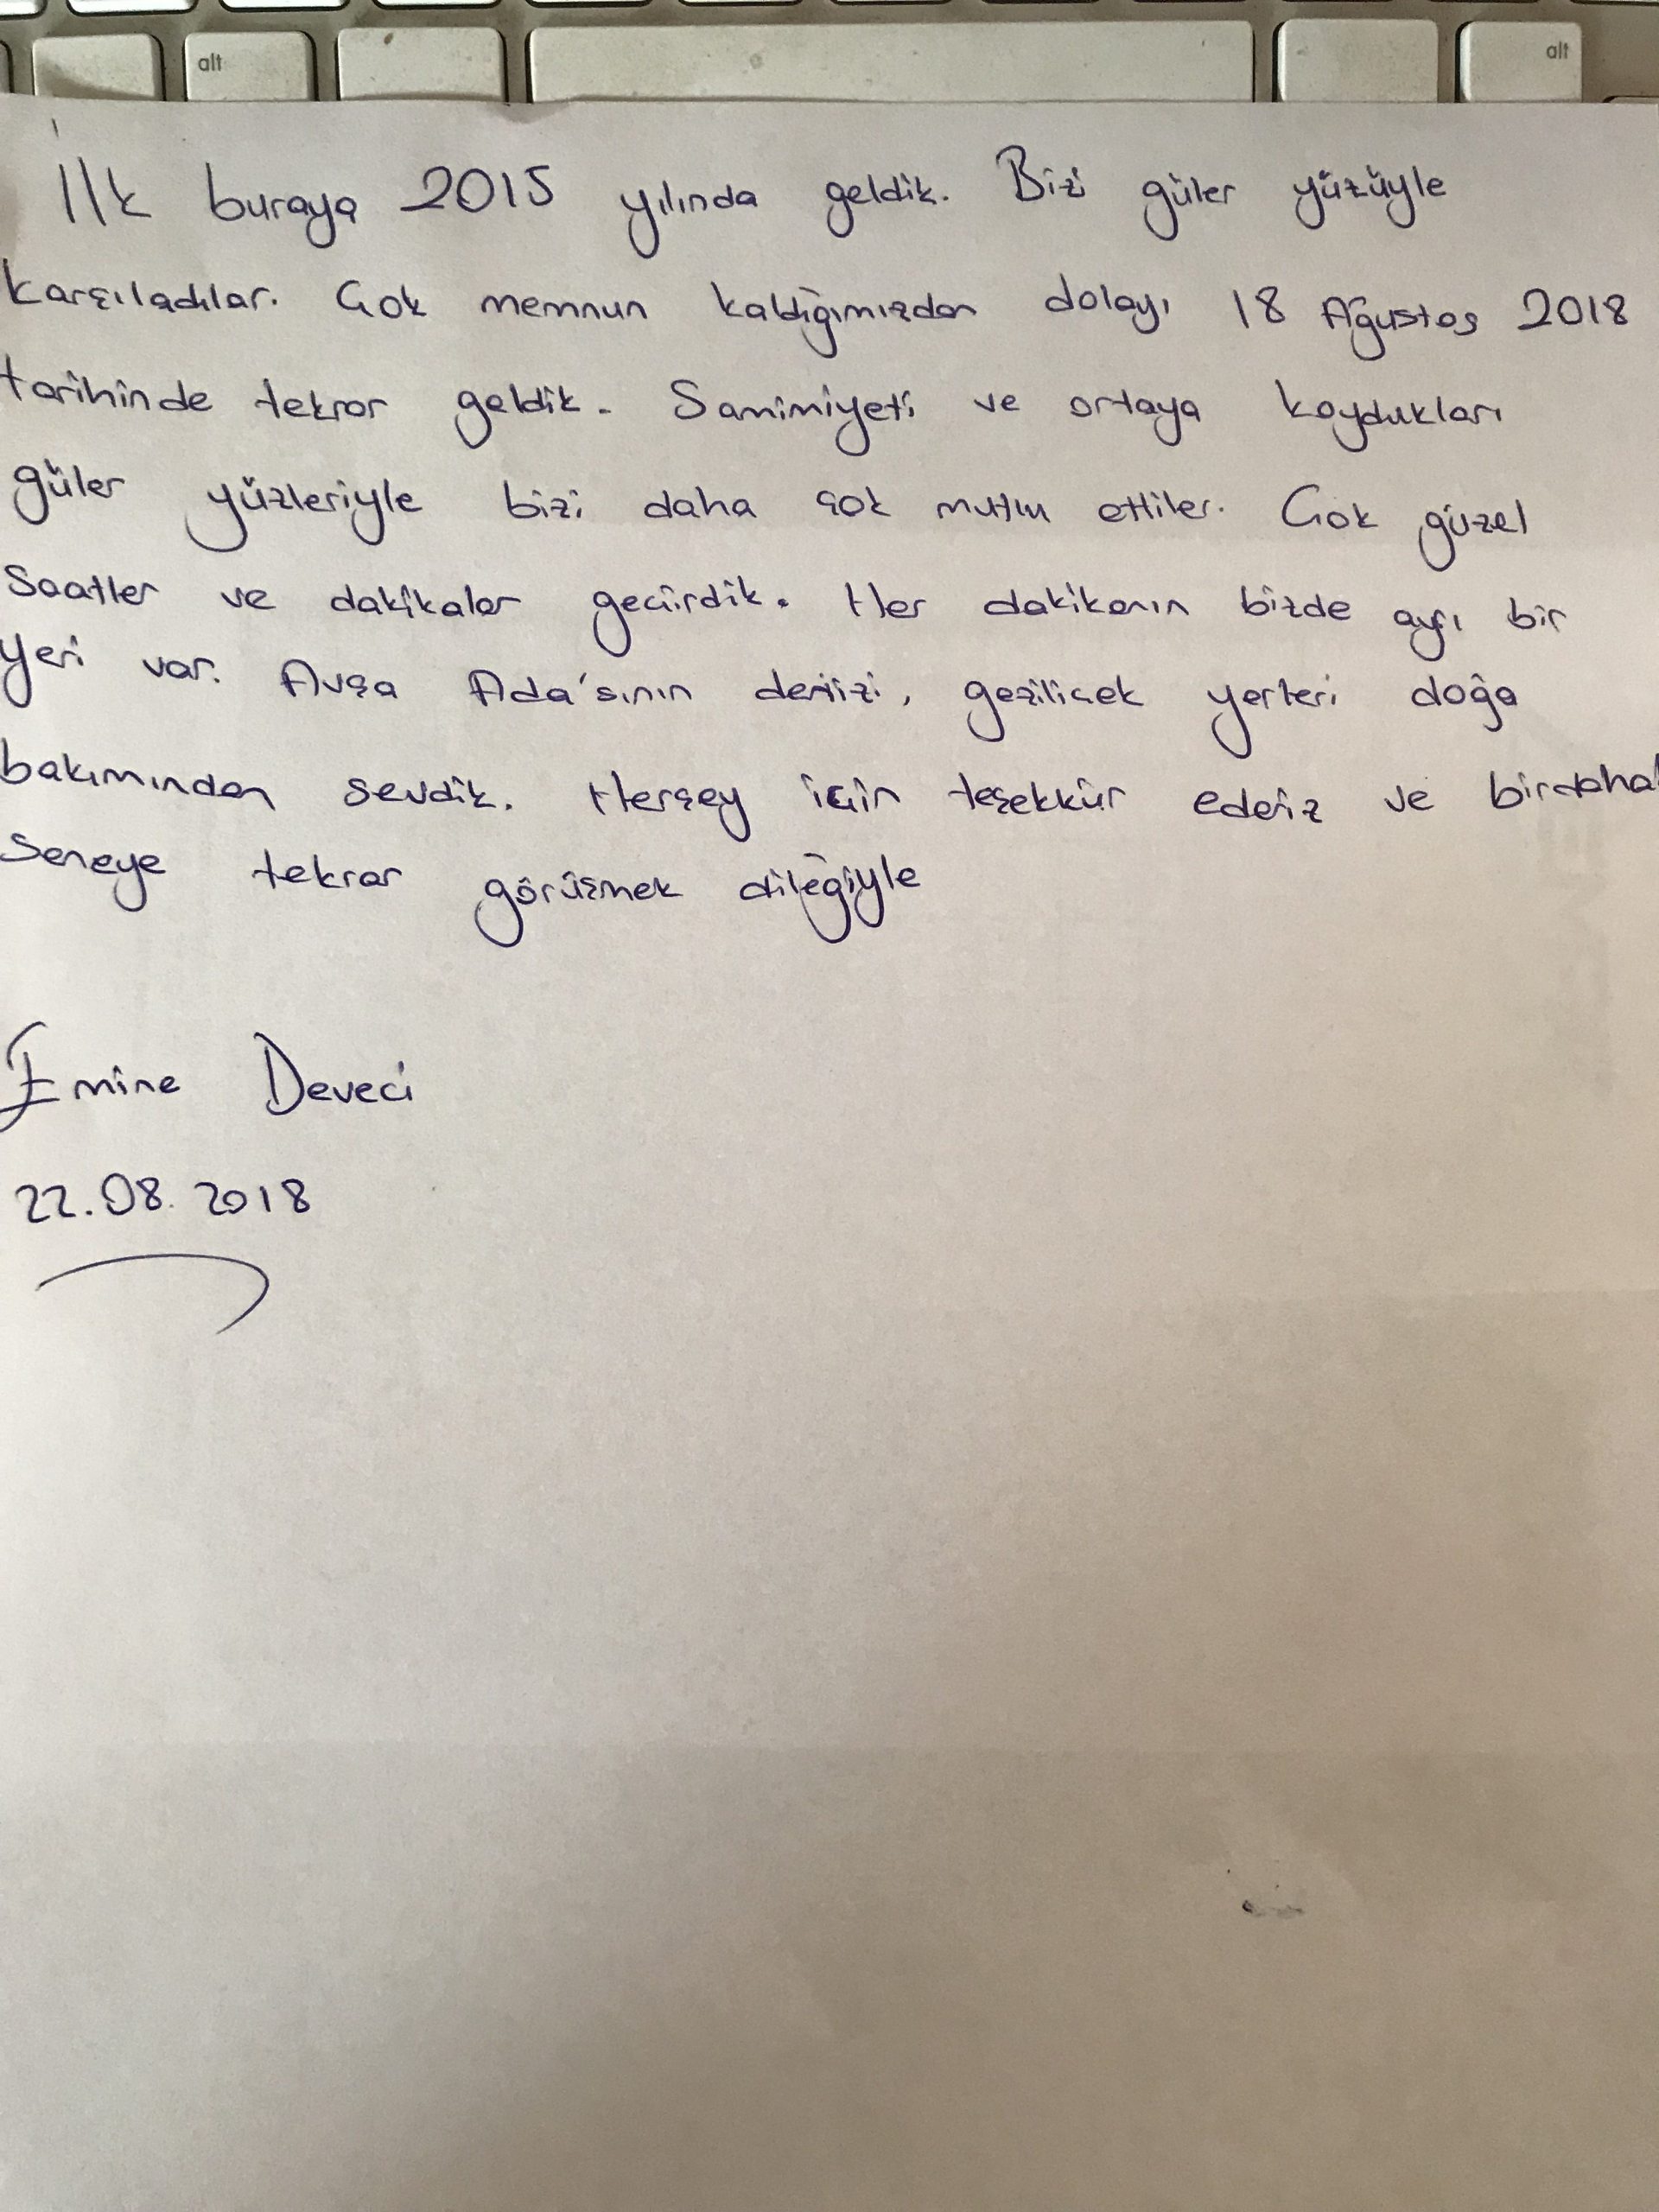 alt alt
İlk buraya 2015 yılında geldik. Bizi güler yüzüyle
karşıladılar. Çok memnun kaldığımızdan dolayı 18 Ağustos 2018
tarihinde tekrar geldik. Samimiyeti ve ortaya koydukları
güler yüzleriyle bizi daha çok mutlu ettiler. Çok güzel
saatler ve dakikalar geçirdik. Her dakikanın bizde ayrı bir
yeri var. Avşa Ada'sının denizi, gezilicek yerleri doğa
bakımından sevdik. Herşey için teşekkür ederiz ve birdahaki
seneye tekrar görüşmek dileğiyle
Emine Deveci
22.08.2018